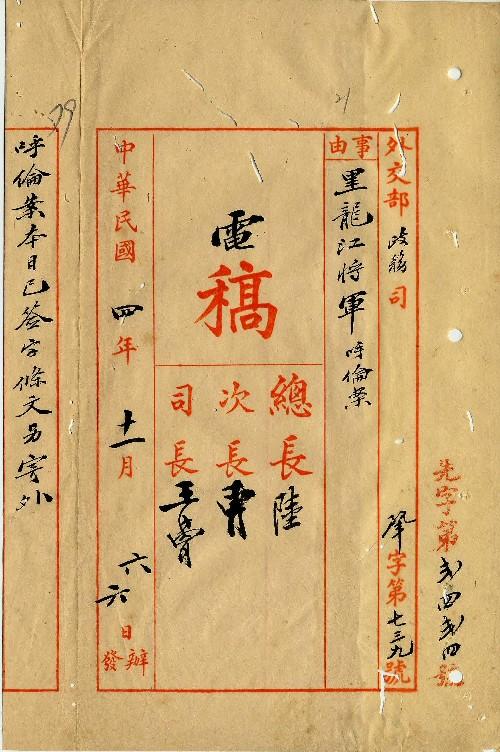 先字第弍四弍四號
外交部政務司 字第七三九號
事由
黑龍江將軍呼倫案
電稿
總長陸
次長曹
司長王
中華民國四年十一月六六日辦發
呼倫案本日已簽字條文另寄外
79